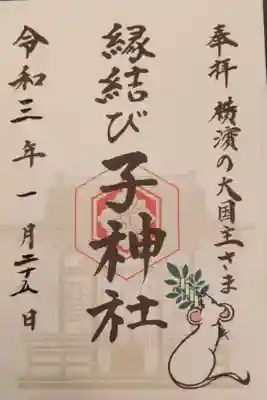 奉拝 横濱の大国主さま
縁結び 子神社
令和三年一月二十五日